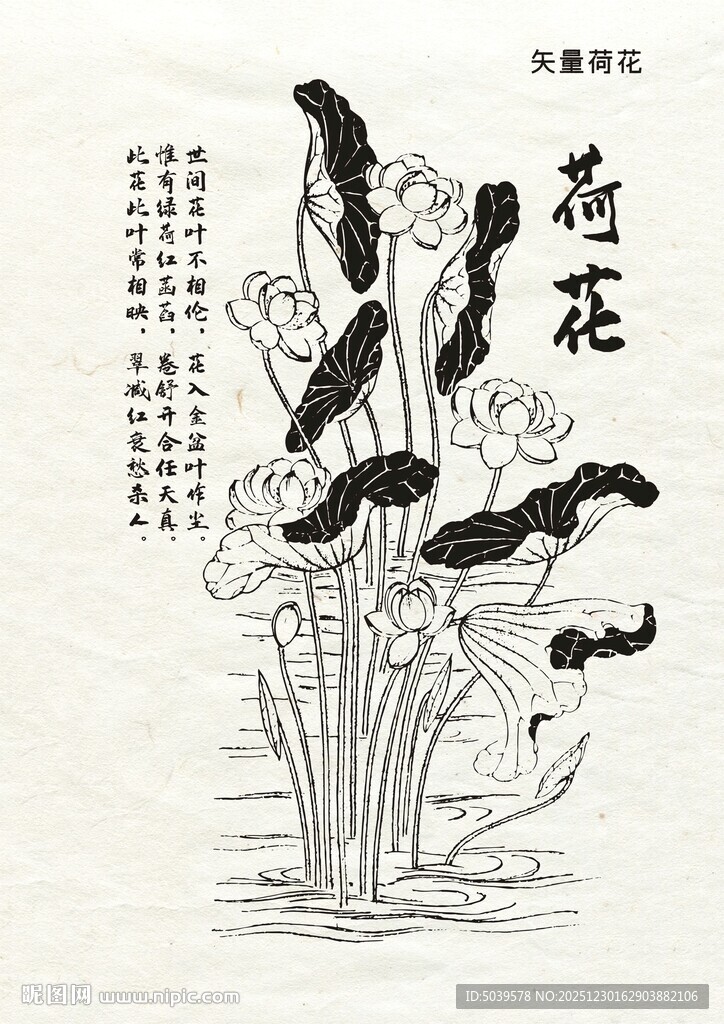 矢量荷花
荷花
世间花叶不相伦，花入金盆叶作尘。
惟有绿荷红菡萏，卷舒开合任天真。
此花此叶常相映，翠减红衰愁杀人。
昵图网 www.nipic.com
ID:5039578 NO:20251230162903882106